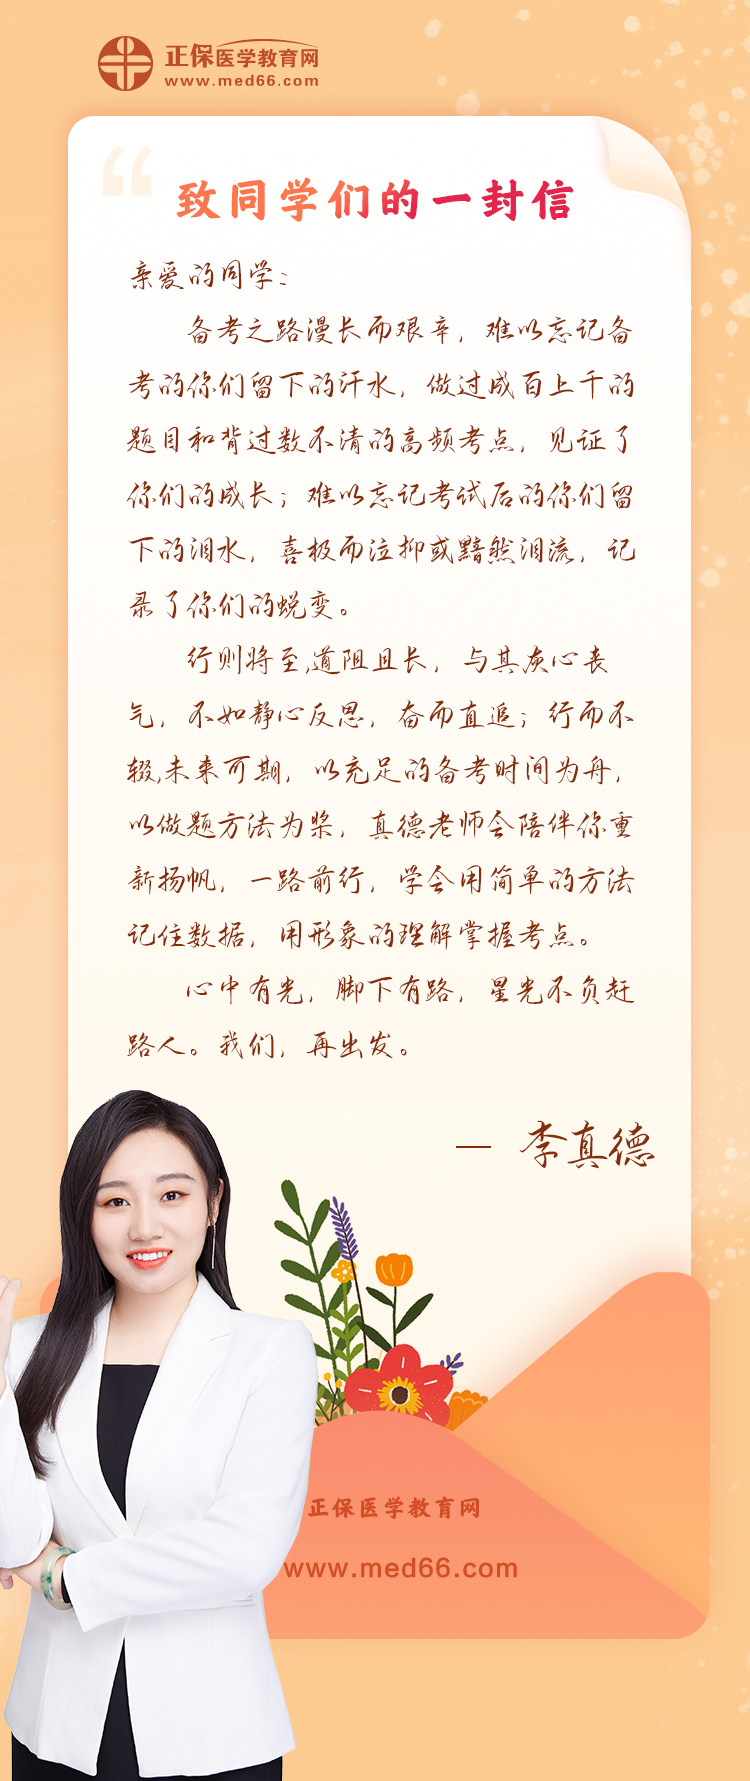 正保医学教育网
www.med66.com
致同学们的一封信
亲爱的同学：
备考之路漫长而艰辛，难以忘记备
考的你们留下的汗水，做过成百上千的
题目和背过数不清的高频考点，见证了
你们的成长；难以忘记考试后的你们留
下的泪水，喜极而泣抑或黯然泪流，记
录了你们的蜕变。
行则将至,道阻且长，与其灰心丧
气，不如静心反思，奋而直追；行而不
辍,未来可期，以充足的备考时间为舟，
以做题方法为桨，真德老师会陪伴你重
新扬帆，一路前行，学会用简单的方法
记住数据，用形象的理解掌握考点。
心中有光，脚下有路，星光不负赶
路人。我们，再出发。
— 李真德
正保医学教育网
www.med66.com